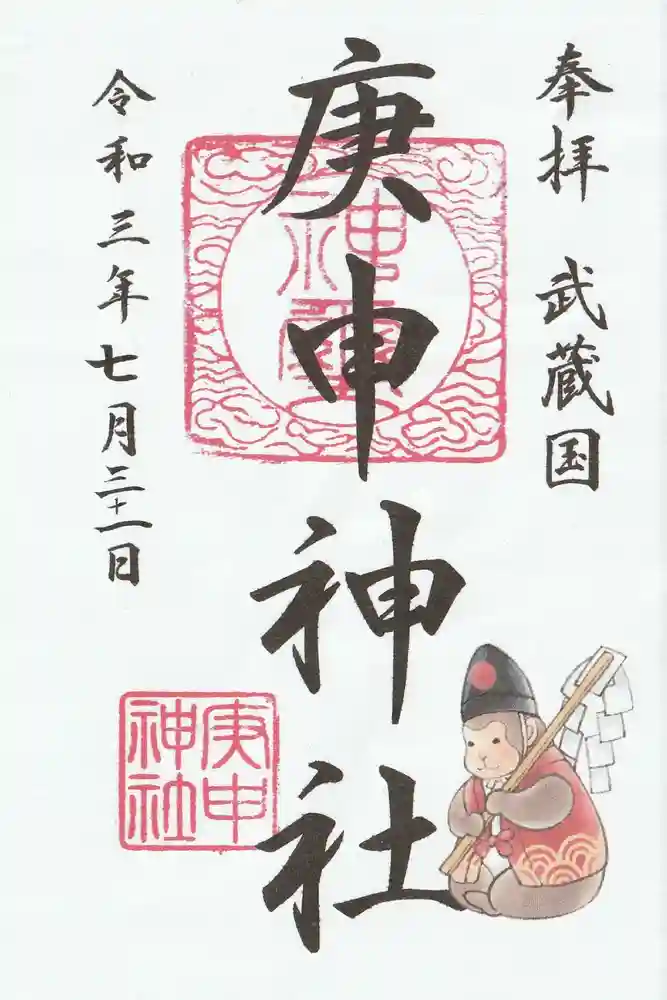 奉拝 武蔵国
庚申神社
令和三年七月三十一日
神璽
庚申
神社